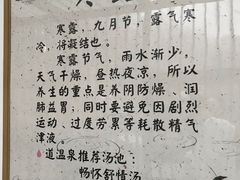 寒露，九月节，露气寒
冷，将凝结也。
寒露节气，雨水渐少，
天气干燥，昼热夜凉，所以
养生的重点是养阴防燥、润
肺益胃；同时要避免因剧烈
运动、过度劳累等耗散精气
津液。
道温泉推荐汤池：
畅怀舒情汤